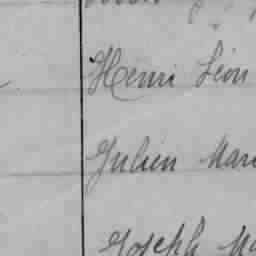 Henri Léon
Julien Mari
Joseph Ma